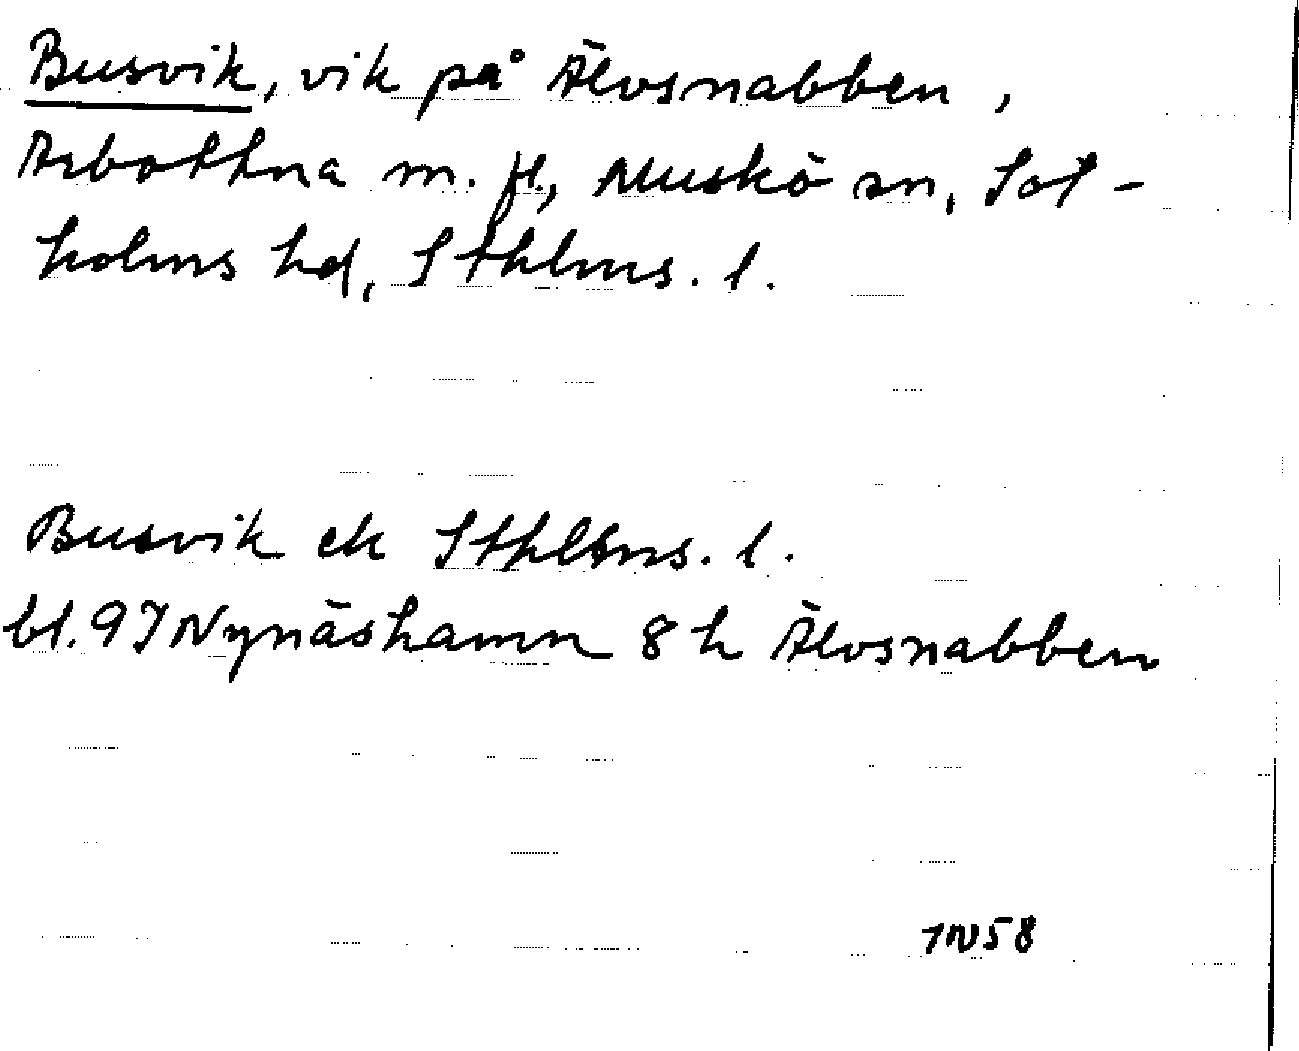 Busvik, vik på Älvsnabben,
Arbottna m. fl., Muskö sn, Sot-
holms hd, Sthlms. l.
Busvik ek Sthlms. l.
bl. 9I Nynäshamn 8 h Älvsnabben